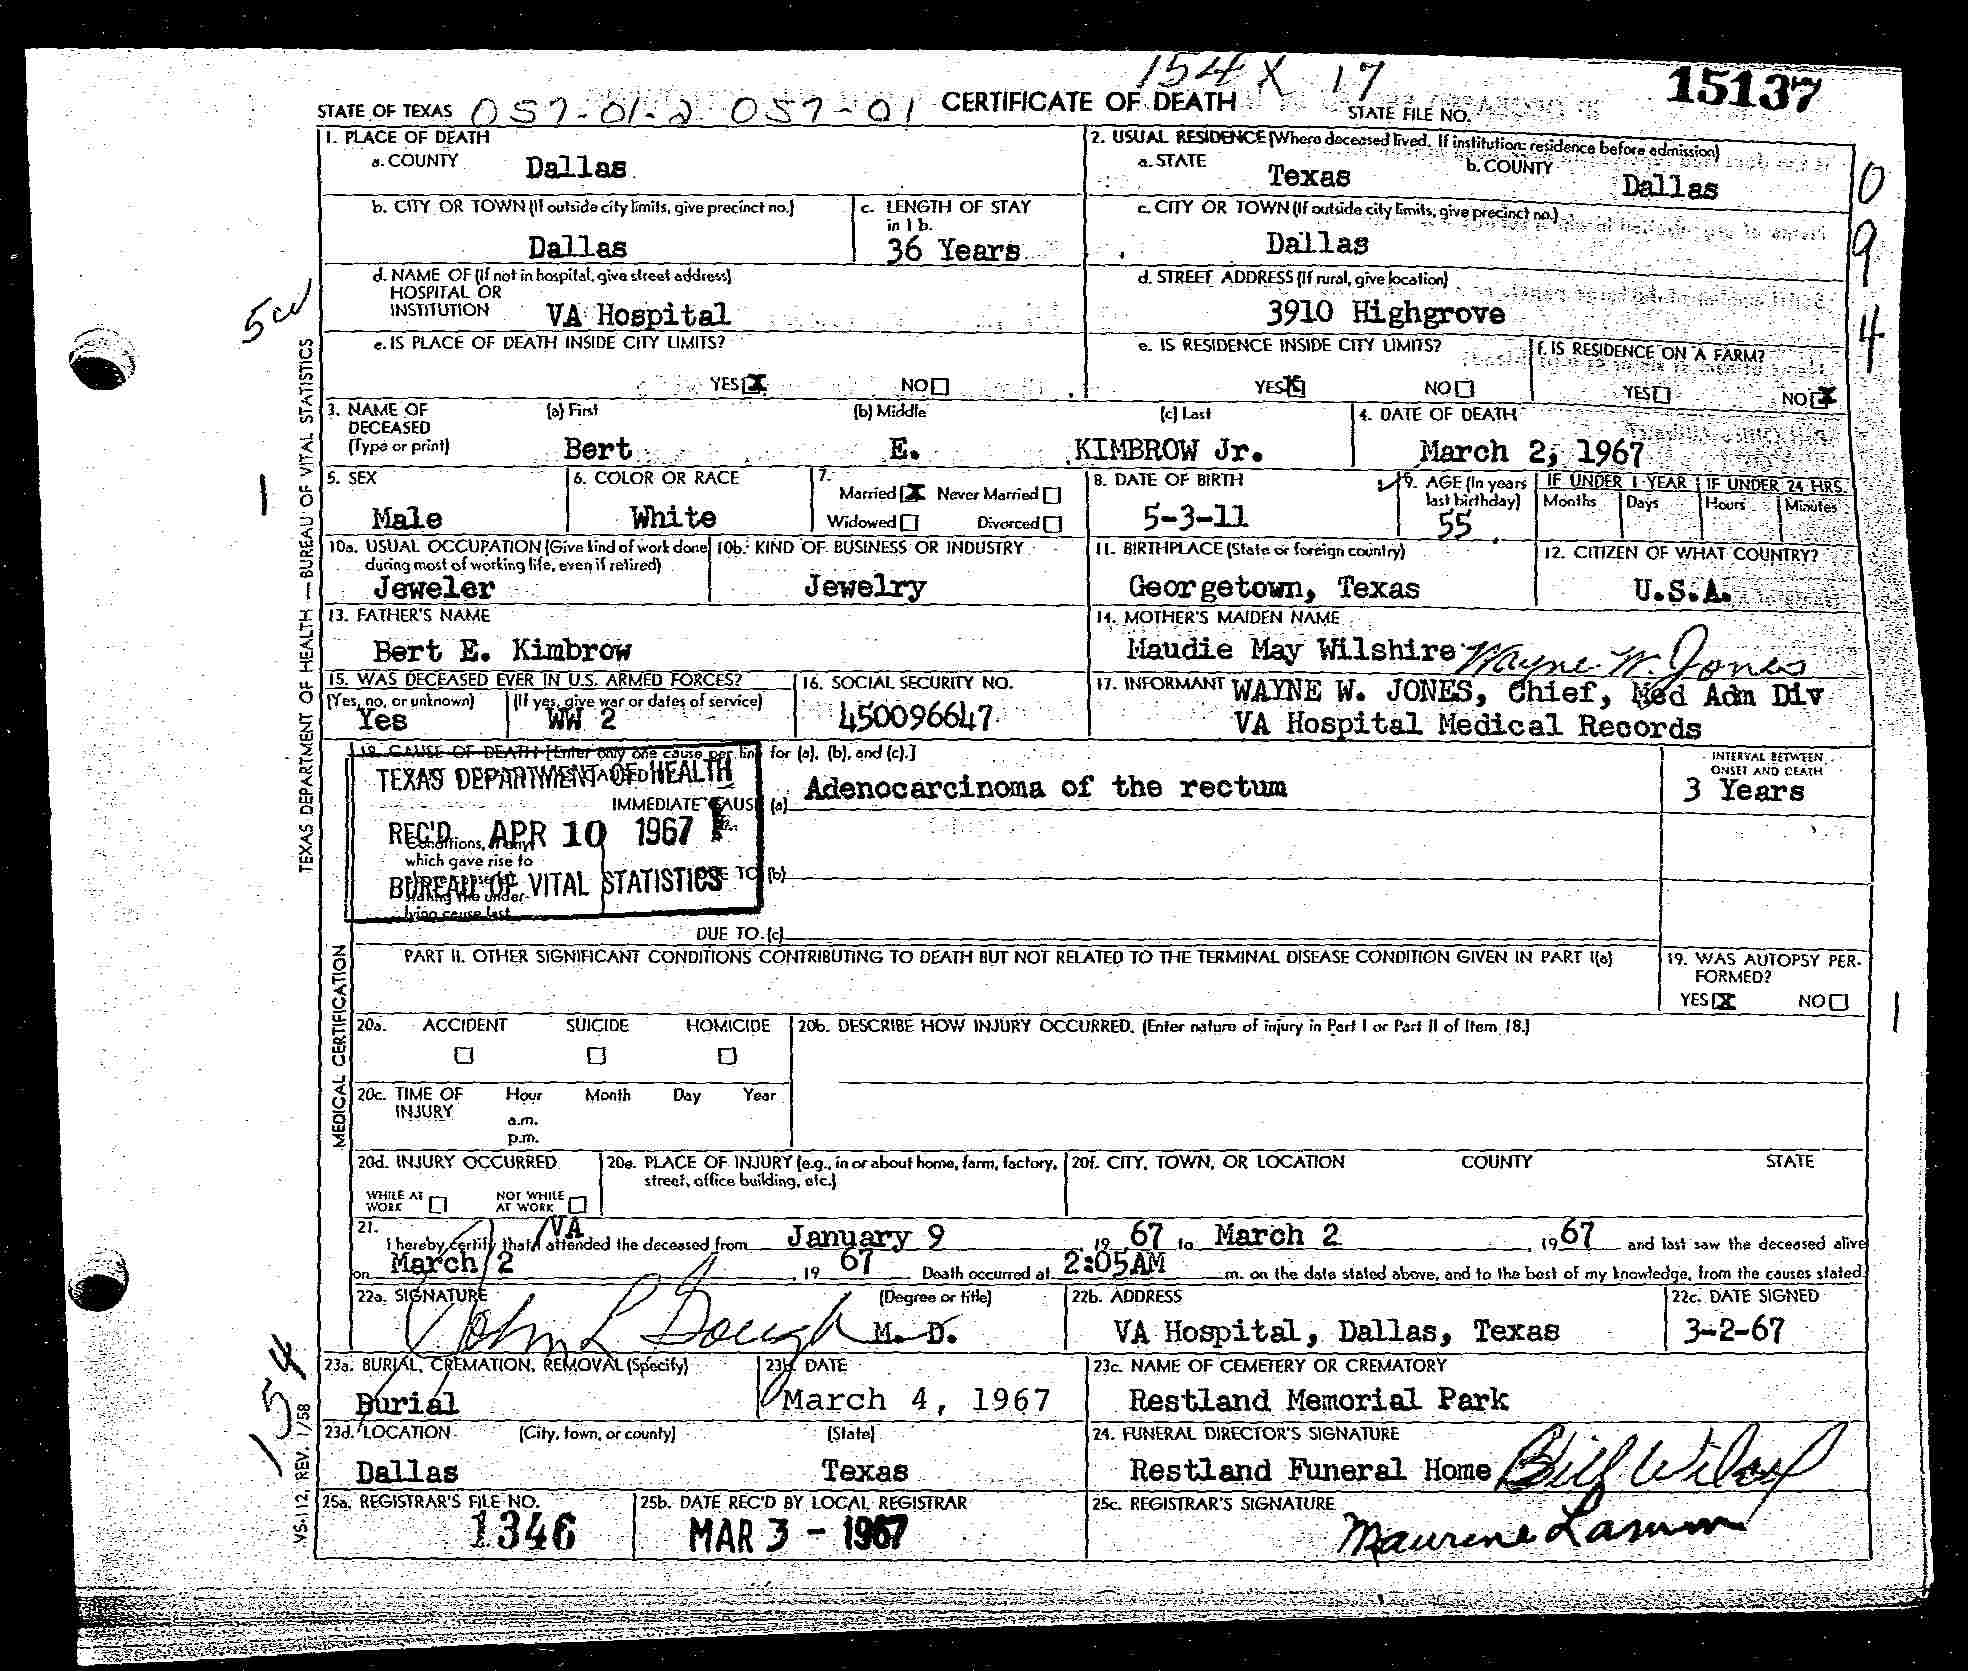 154 X 17
15137
STATE OF TEXAS 057-01-2 057-01 CERTIFICATE OF DEATH STATE FILE NO.
1. PLACE OF DEATH
a. COUNTY Dallas
2. USUAL RESIDENCE (Where deceased lived. If institution: residence before admission)
a. STATE Texas b. COUNTY Dallas
b. CITY OR TOWN (If outside city limits, give precinct no.) Dallas
c. LENGTH OF STAY in 1 b. 36 Years
c. CITY OR TOWN (If outside city limits, give precinct no.) Dallas
d. NAME OF (If not in hospital, give street address)
HOSPITAL OR
INSTITUTION VA Hospital
d. STREET ADDRESS (If rural, give location)
3910 Highgrove
e. IS PLACE OF DEATH INSIDE CITY LIMITS?
YES X NO
e. IS RESIDENCE INSIDE CITY LIMITS?
YES X NO
f. IS RESIDENCE ON A FARM?
YES NO X
094
3. NAME OF DECEASED (Type or print)
(a) First Bert (b) Middle E. (c) Last KIMBROW Jr.
4. DATE OF DEATH March 2, 1967
5. SEX Male
6. COLOR OR RACE White
7. Married X Never Married
Widowed Divorced
8. DATE OF BIRTH 5-3-11
9. AGE (In years last birthday) 55
IF UNDER 1 YEAR Months Days
IF UNDER 24 HRS. Hours Minutes
10a. USUAL OCCUPATION (Give kind of work done during most of working life, even if retired)
Jeweler
10b. KIND OF BUSINESS OR INDUSTRY
Jewelry
11. BIRTHPLACE (State or foreign country)
Georgetown, Texas
12. CITIZEN OF WHAT COUNTRY?
U.S.A.
13. FATHER'S NAME
Bert E. Kimbrow
14. MOTHER'S MAIDEN NAME
Maudie May Wilshire
Wayne W. Jones
15. WAS DECEASED EVER IN U.S. ARMED FORCES?
(Yes, no, or unknown) Yes
(If yes, give war or dates of service) WW 2
16. SOCIAL SECURITY NO.
450096647
17. INFORMANT WAYNE W. JONES, Chief, Med Adm Div
VA Hospital Medical Records
18. CAUSE OF DEATH [Enter only one cause per line for (a), (b), and (c).]
TEXAS DEPARTMENT OF HEALTH
REC'D APR 10 1967
BUREAU OF VITAL STATISTICS
IMMEDIATE CAUSE (a) Adenocarcinoma of the rectum
INTERVAL BETWEEN ONSET AND DEATH
3 Years
Conditions, if any,
which gave rise to
lying cause last.
DUE TO (b)
DUE TO (c)
PART II. OTHER SIGNIFICANT CONDITIONS CONTRIBUTING TO DEATH BUT NOT RELATED TO THE TERMINAL DISEASE CONDITION GIVEN IN PART I(a)
19. WAS AUTOPSY PERFORMED?
YES X NO
20a. ACCIDENT SUICIDE HOMICIDE
20b. DESCRIBE HOW INJURY OCCURRED. (Enter nature of injury in Part I or Part II of Item 18.)
20c. TIME OF INJURY Hour Month Day Year
a.m.
p.m.
20d. INJURY OCCURRED
WHILE AT WORK NOT WHILE AT WORK
20e. PLACE OF INJURY (e.g., in or about home, farm, factory, street, office building, etc.)
20f. CITY, TOWN, OR LOCATION COUNTY STATE
21. VA
I hereby certify that attended the deceased from January 9 19 67 to March 2 1967 and last saw the deceased alive
on March 2 19 67 Death occurred at 2:05AM m. on the date stated above, and to the best of my knowledge, from the causes stated.
22a. SIGNATURE (Degree or title)
John L Gough M. D.
22b. ADDRESS
VA Hospital, Dallas, Texas
22c. DATE SIGNED
3-2-67
23a. BURIAL, CREMATION, REMOVAL (Specify)
Burial
23b. DATE
March 4, 1967
23c. NAME OF CEMETERY OR CREMATORY
Restland Memorial Park
23d. LOCATION (City, town, or county) (State)
Dallas Texas
24. FUNERAL DIRECTOR'S SIGNATURE
Restland Funeral Home Bill Wilson
25a. REGISTRAR'S FILE NO.
1346
25b. DATE REC'D BY LOCAL REGISTRAR
MAR 3 - 1967
25c. REGISTRAR'S SIGNATURE
Maurene
TEXAS DEPARTMENT OF HEALTH — BUREAU OF VITAL STATISTICS
MEDICAL CERTIFICATION
VS-112, REV. 1/58
154
1
1